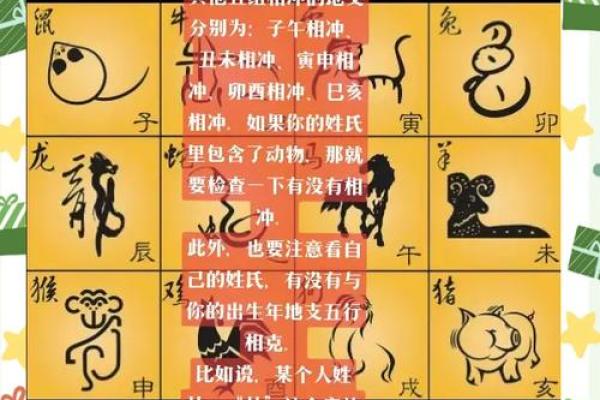 其他五组相冲的地支
分别为：子午相冲、
丑未相冲、寅申相
冲、卯酉相冲、巳亥
相冲. 如果你的姓氏
里包含了动物, 那就
要检查一下有没有相
冲.
此外, 也要注意看自
己的姓氏, 有没有与
你的出生年地支五行
相克.
比如说, 某个人姓
鼠
子
牛
寅
兔
卯
龙
辰
蛇
马
午
羊
未
猴
申
鸡
酉
狗
戌
猪
亥